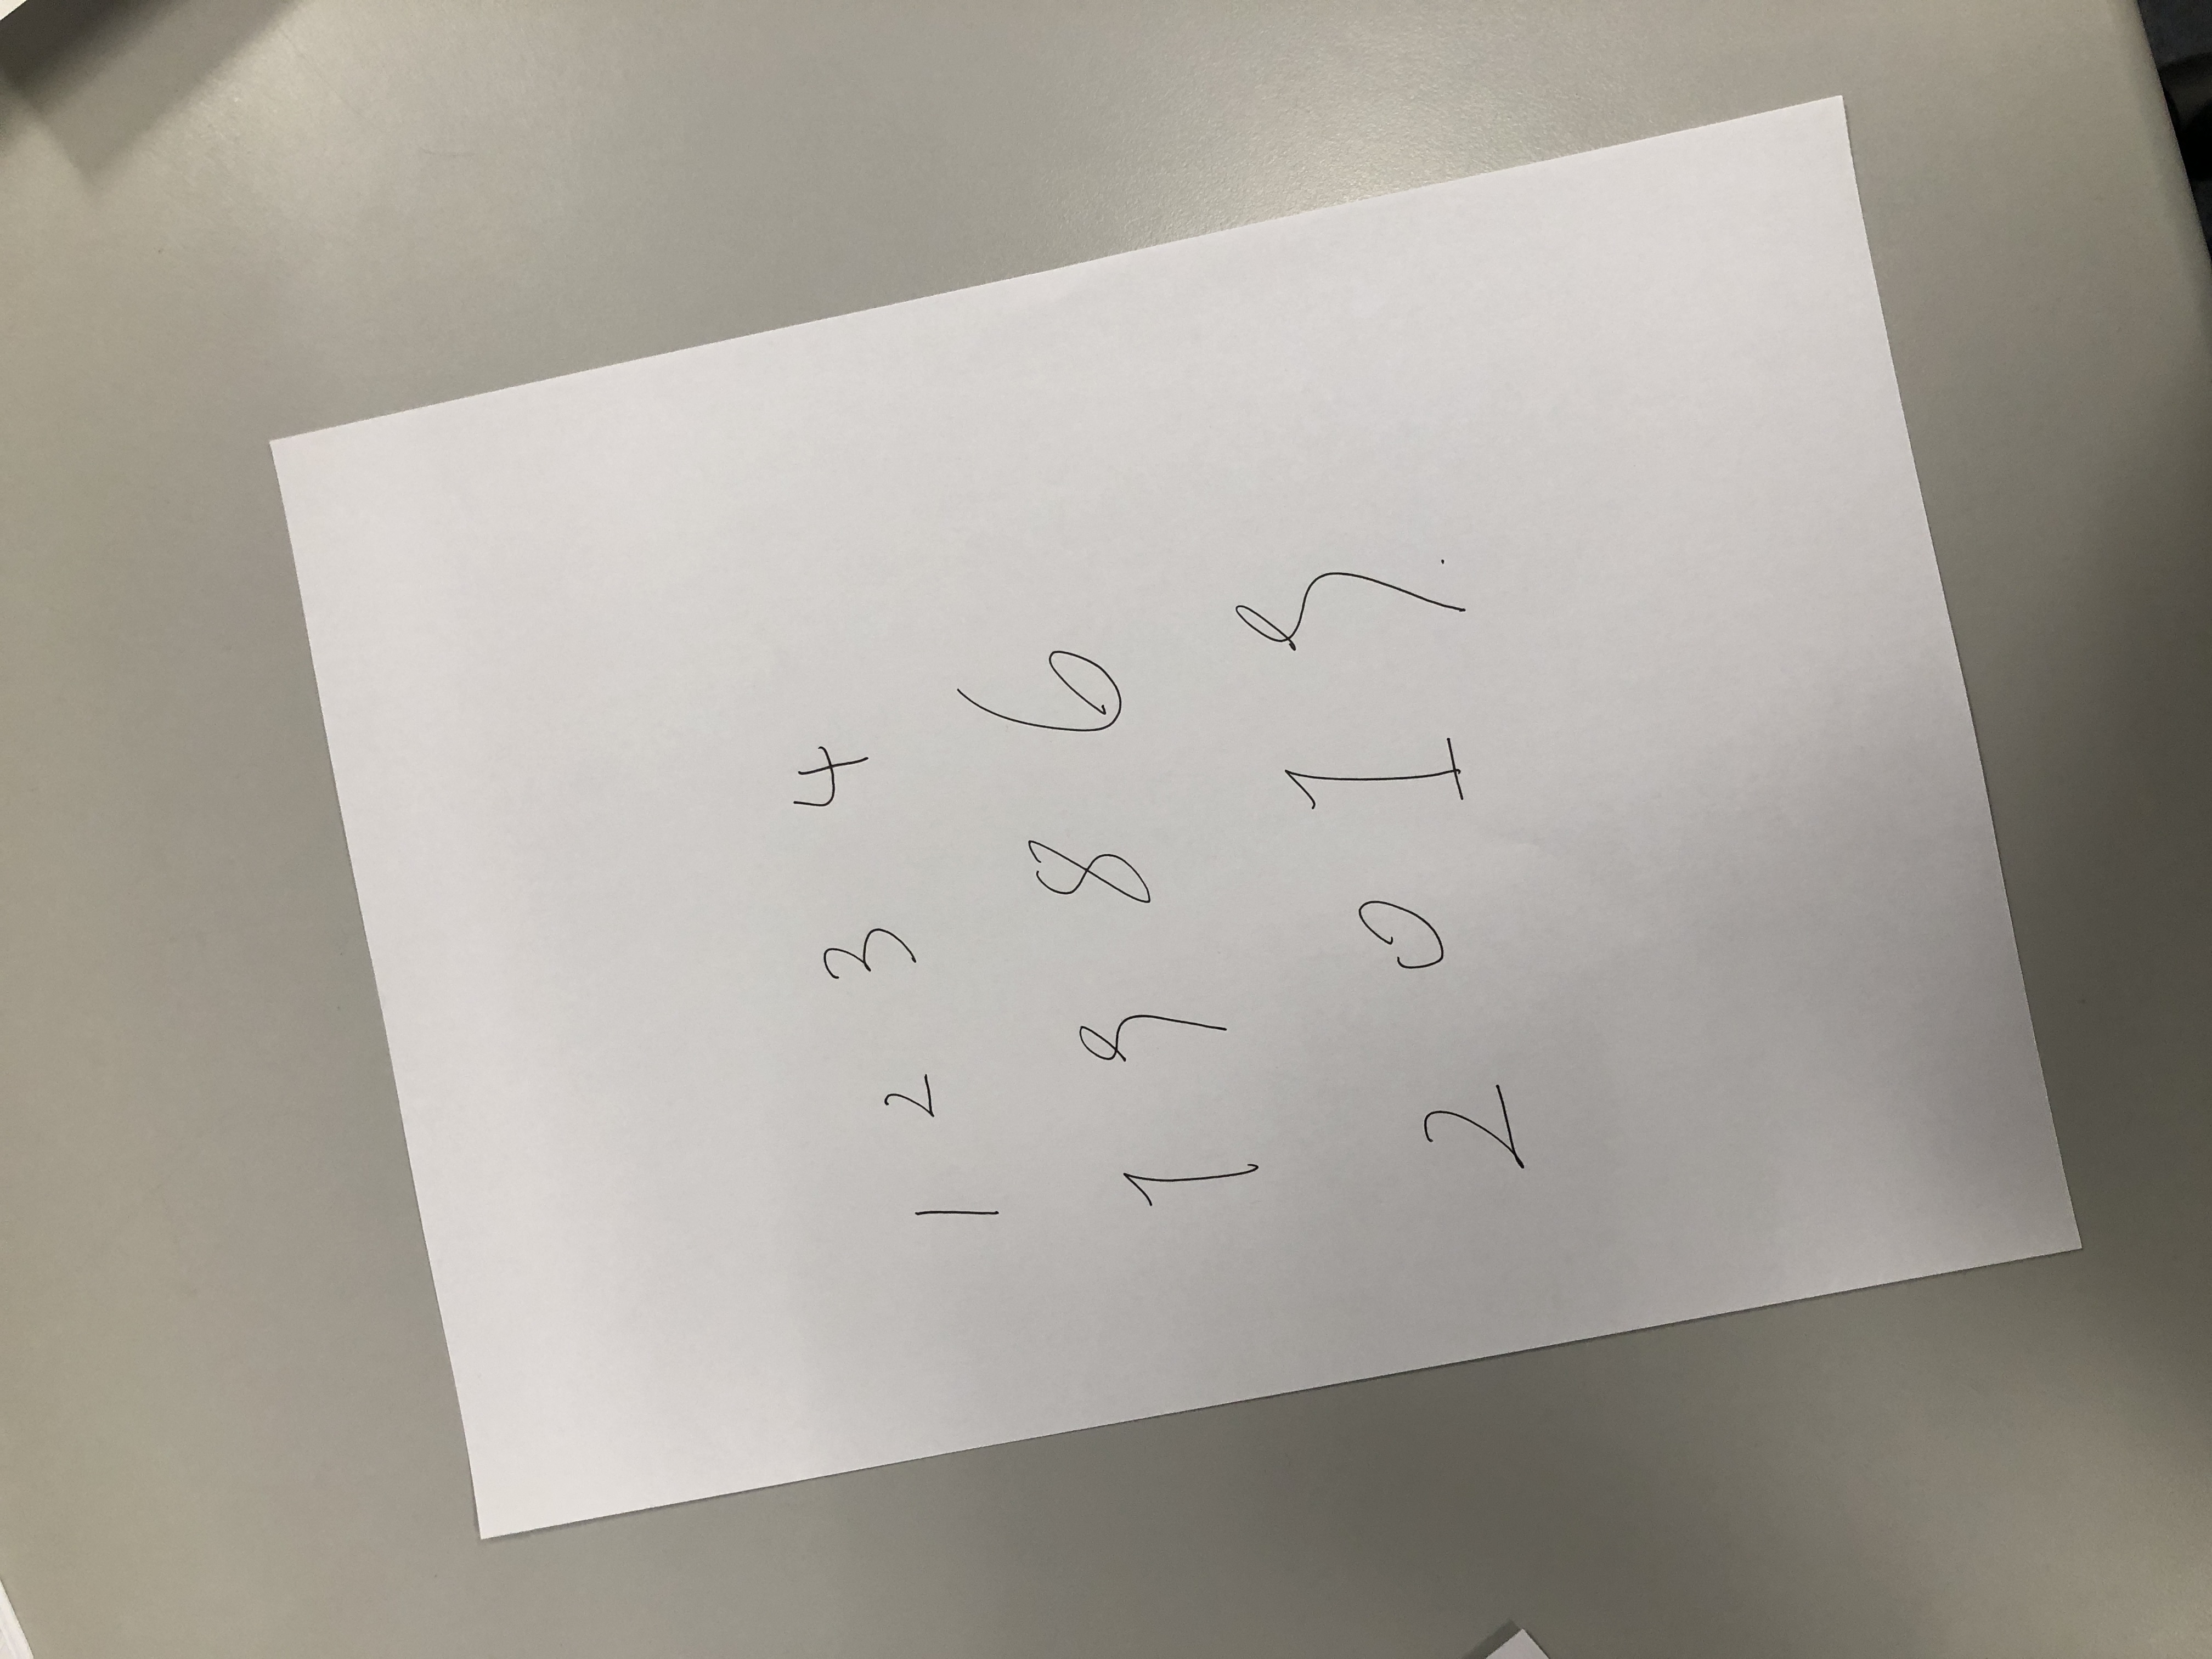 1 2 3 4
1 9 8 6
2 0 1 9.